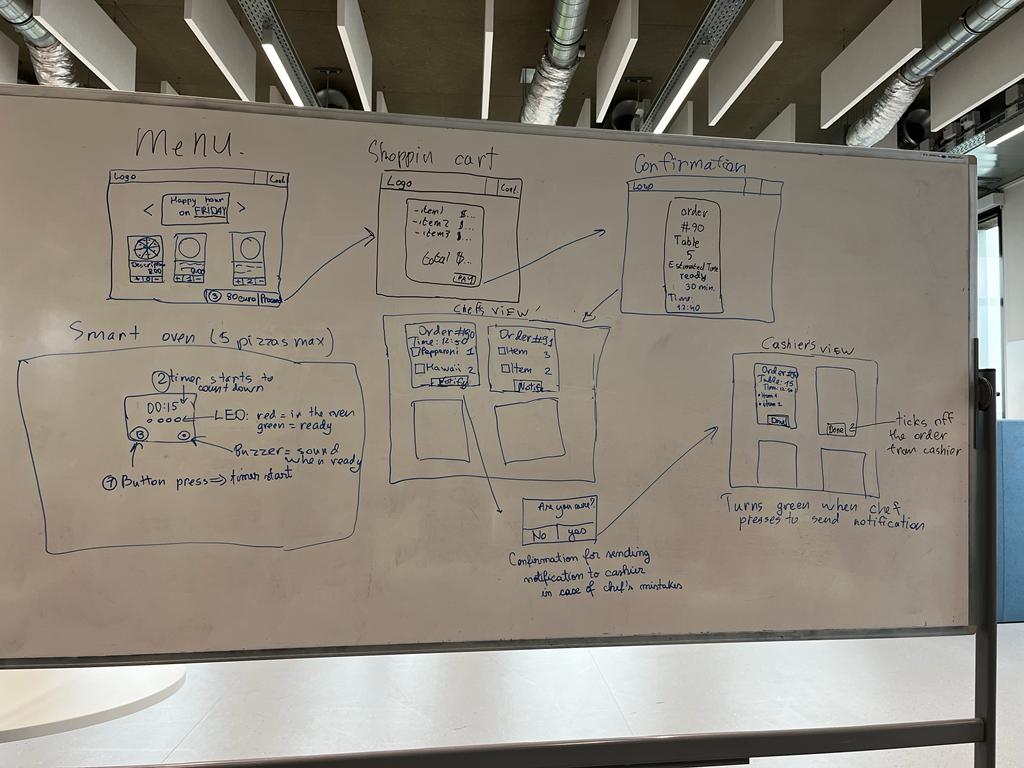 Menu.
Logo
Cart
Happy hour
on FRIDAY
< >
Descrip
8.00
+|0|-
0.00
+|1|-
+|2|-
(3) 80euro Proceed
Shoppin cart
Logo
Cart
-item1 $...
-item2 $...
-item3 $...
total $...
PAY
Confirmation
Logo
order
#90
Table
5
Estimated Time
ready
30 min.
Time:
12:40
Smart oven (5 pizzas max)
② timer starts to
countdown
00:15
LED: red = in the oven
green = ready
B
Buzzer = sound
when ready
① Button press => timer start
Chef's VIEW
Order #90
Time: 12:50
Pepparoni 1
Hawaii 2
Notify
Order #91
Item 3
Item 2
Notify
Are you sure?
No yes
Confirmation for sending
notification to cashier
in case of chef's mistakes
Cashier's VIEW
Order #90
Table: 15
Time: 12:50
• item 1
• item 2
Done
Done
ticks off
the order
from cashier
Turns green when chef
presses to send notification